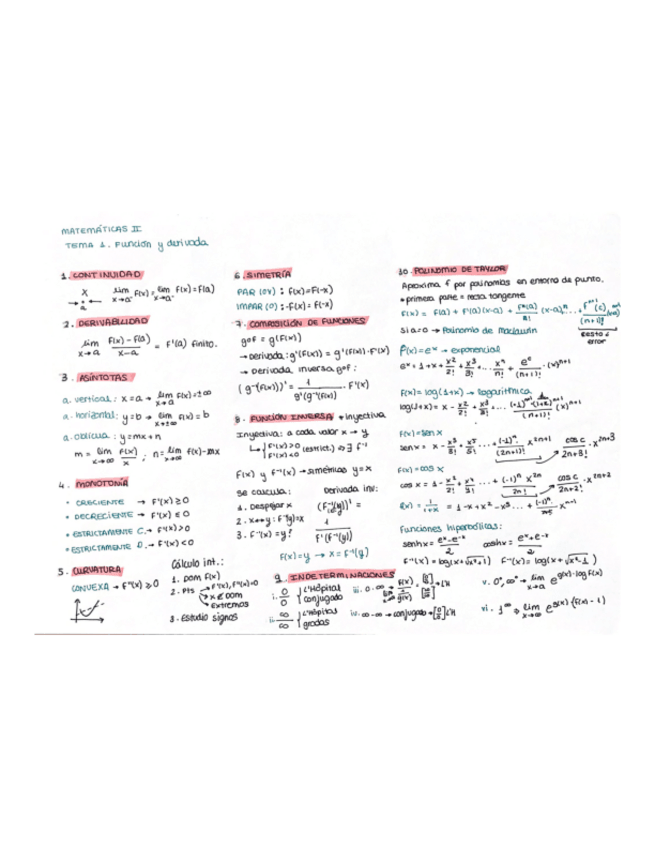 MATEMÁTICAS II
TEMA 1. Función y derivada
1. CONTINUIDAD
lim x→a⁻ f(x) = lim x→a⁺ f(x) = f(a)
2. DERIVABILIDAD
lim x→a (f(x) - f(a))/(x-a) = f'(a) finito.
3. ASÍNTOTAS
a. vertical: x = a → lim x→a f(x) = ±∞
a. horizontal: y = b → lim x→±∞ f(x) = b
a. oblicua: y = mx + n
m = lim x→∞ f(x)/x ; n = lim x→∞ f(x) - mx
4. MONOTONÍA
• CRECIENTE → f'(x) ≥ 0
• DECRECIENTE → f'(x) ≤ 0
• ESTRICTAMENTE C. → f'(x) > 0
• ESTRICTAMENTE D. → f'(x) < 0
5. CURVATURA
CONVEXA → f''(x) ≥ 0
Cálculo int.:
1. DOM f(x)
2. Pts f'(x), f''(x) = 0
x ∉ DOM
Extremos
3. Estudio signos
6. SIMETRÍA
PAR (OY) : f(x) = f(-x)
IMPAR (O) : -f(x) = f(-x)
7. COMPOSICIÓN DE FUNCIONES
gof = g(f(x))
→ derivada: g'(f(x)) = g'(f(x)) · f'(x)
→ derivada, inversa gof:
8. FUNCIÓN INVERSA → inyectiva
Inyectiva: a cada valor x → y
f'(x) > 0
f'(x) < 0 (estrict.) ⇔ ∃ f⁻¹
f(x) y f⁻¹(x) → simétricas y = x
Se calcula:
1. Despejar x
2. x ↔ y : f⁻¹(y) = x
3. f⁻¹(x) = y!
Derivada inv:
(f⁻¹(y))' =
1 / f'(f⁻¹(y))
f(x) = y → x = f⁻¹(y)
9. INDETERMINACIONES
i. 0/0 L'Hôpital
conjugado
ii. ∞/∞ L'Hôpital
grados
iii. 0·∞ → L'H
iv. ∞-∞ → conjugado → [0/0] L'H
v. 0⁰, ∞⁰ → lim x→a e^(g(x)·log f(x))
vi. 1^∞ → lim x→∞ e^(g(x)(f(x)-1))
10. POLINOMIO DE TAYLOR
Aproxima f por polinomios en entorno de punto.
• primera parte = recta tangente
Si a=0 → Polinomio de Maclaurin
Resto ó
error
f(x) = eˣ → exponencial
f(x) = log(1+x) → logarítmica
f(x) = sen x
f(x) = cos x
Funciones hiperbólicas:
senhx = (eˣ - e⁻ˣ)/2 coshx = (eˣ + e⁻ˣ)/2
f⁻¹(x) = log(x+√x²+1) f⁻¹(x) = log(x+√x²-1)